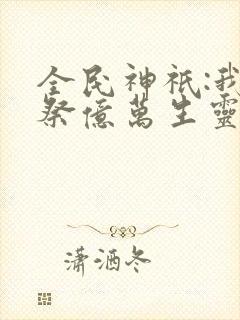 全民神祇:我
祭億萬生靈
瀟洒冬